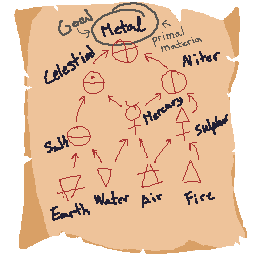 Good
Metal
primal
materia
Celestial
Niter
Mercury
Salt
Sulpher
Earth
Water
Air
Fire